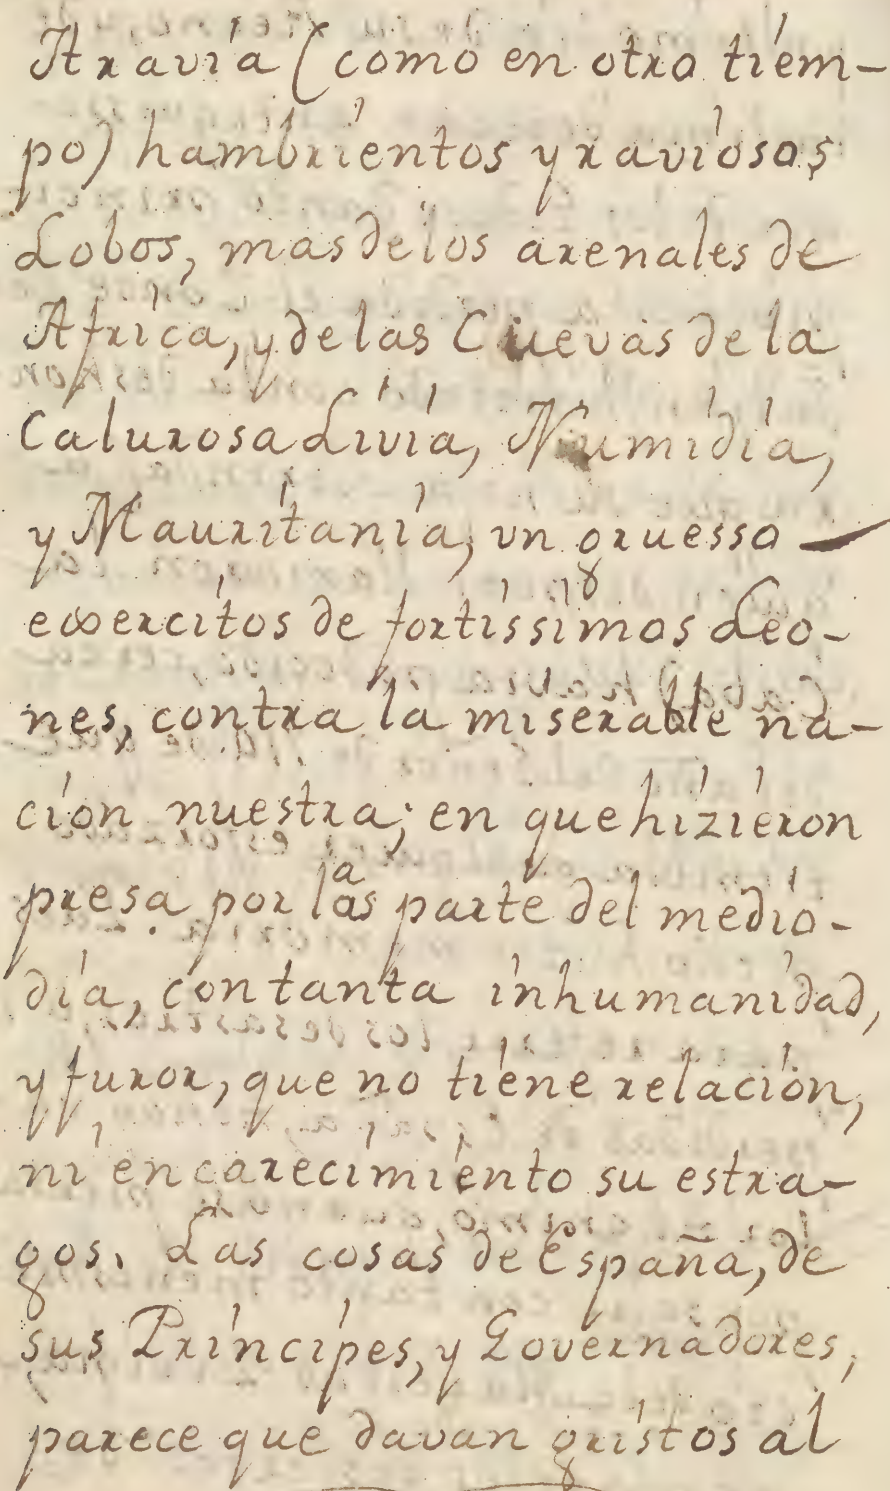 Aravía (como en otro tiem-
po) hambrientos y raviosos
Lobos, mas de los arenales de
Africa, y de las Cuevas de la
Calurosa Livia, Numidia,
y Mauritania, vn gruesso
exercitos de fortissimos Leo-
nes, contra la miserable na-
cion nuestra; en que hizieron
presa por las parte del medio-
dia, con tanta inhumanidad,
y furor, que no tiene relacion,
ni encarecimiento su estra-
gos. Las cosas de España, de
sus Principes, y Governadores,
parece que davan gristos al